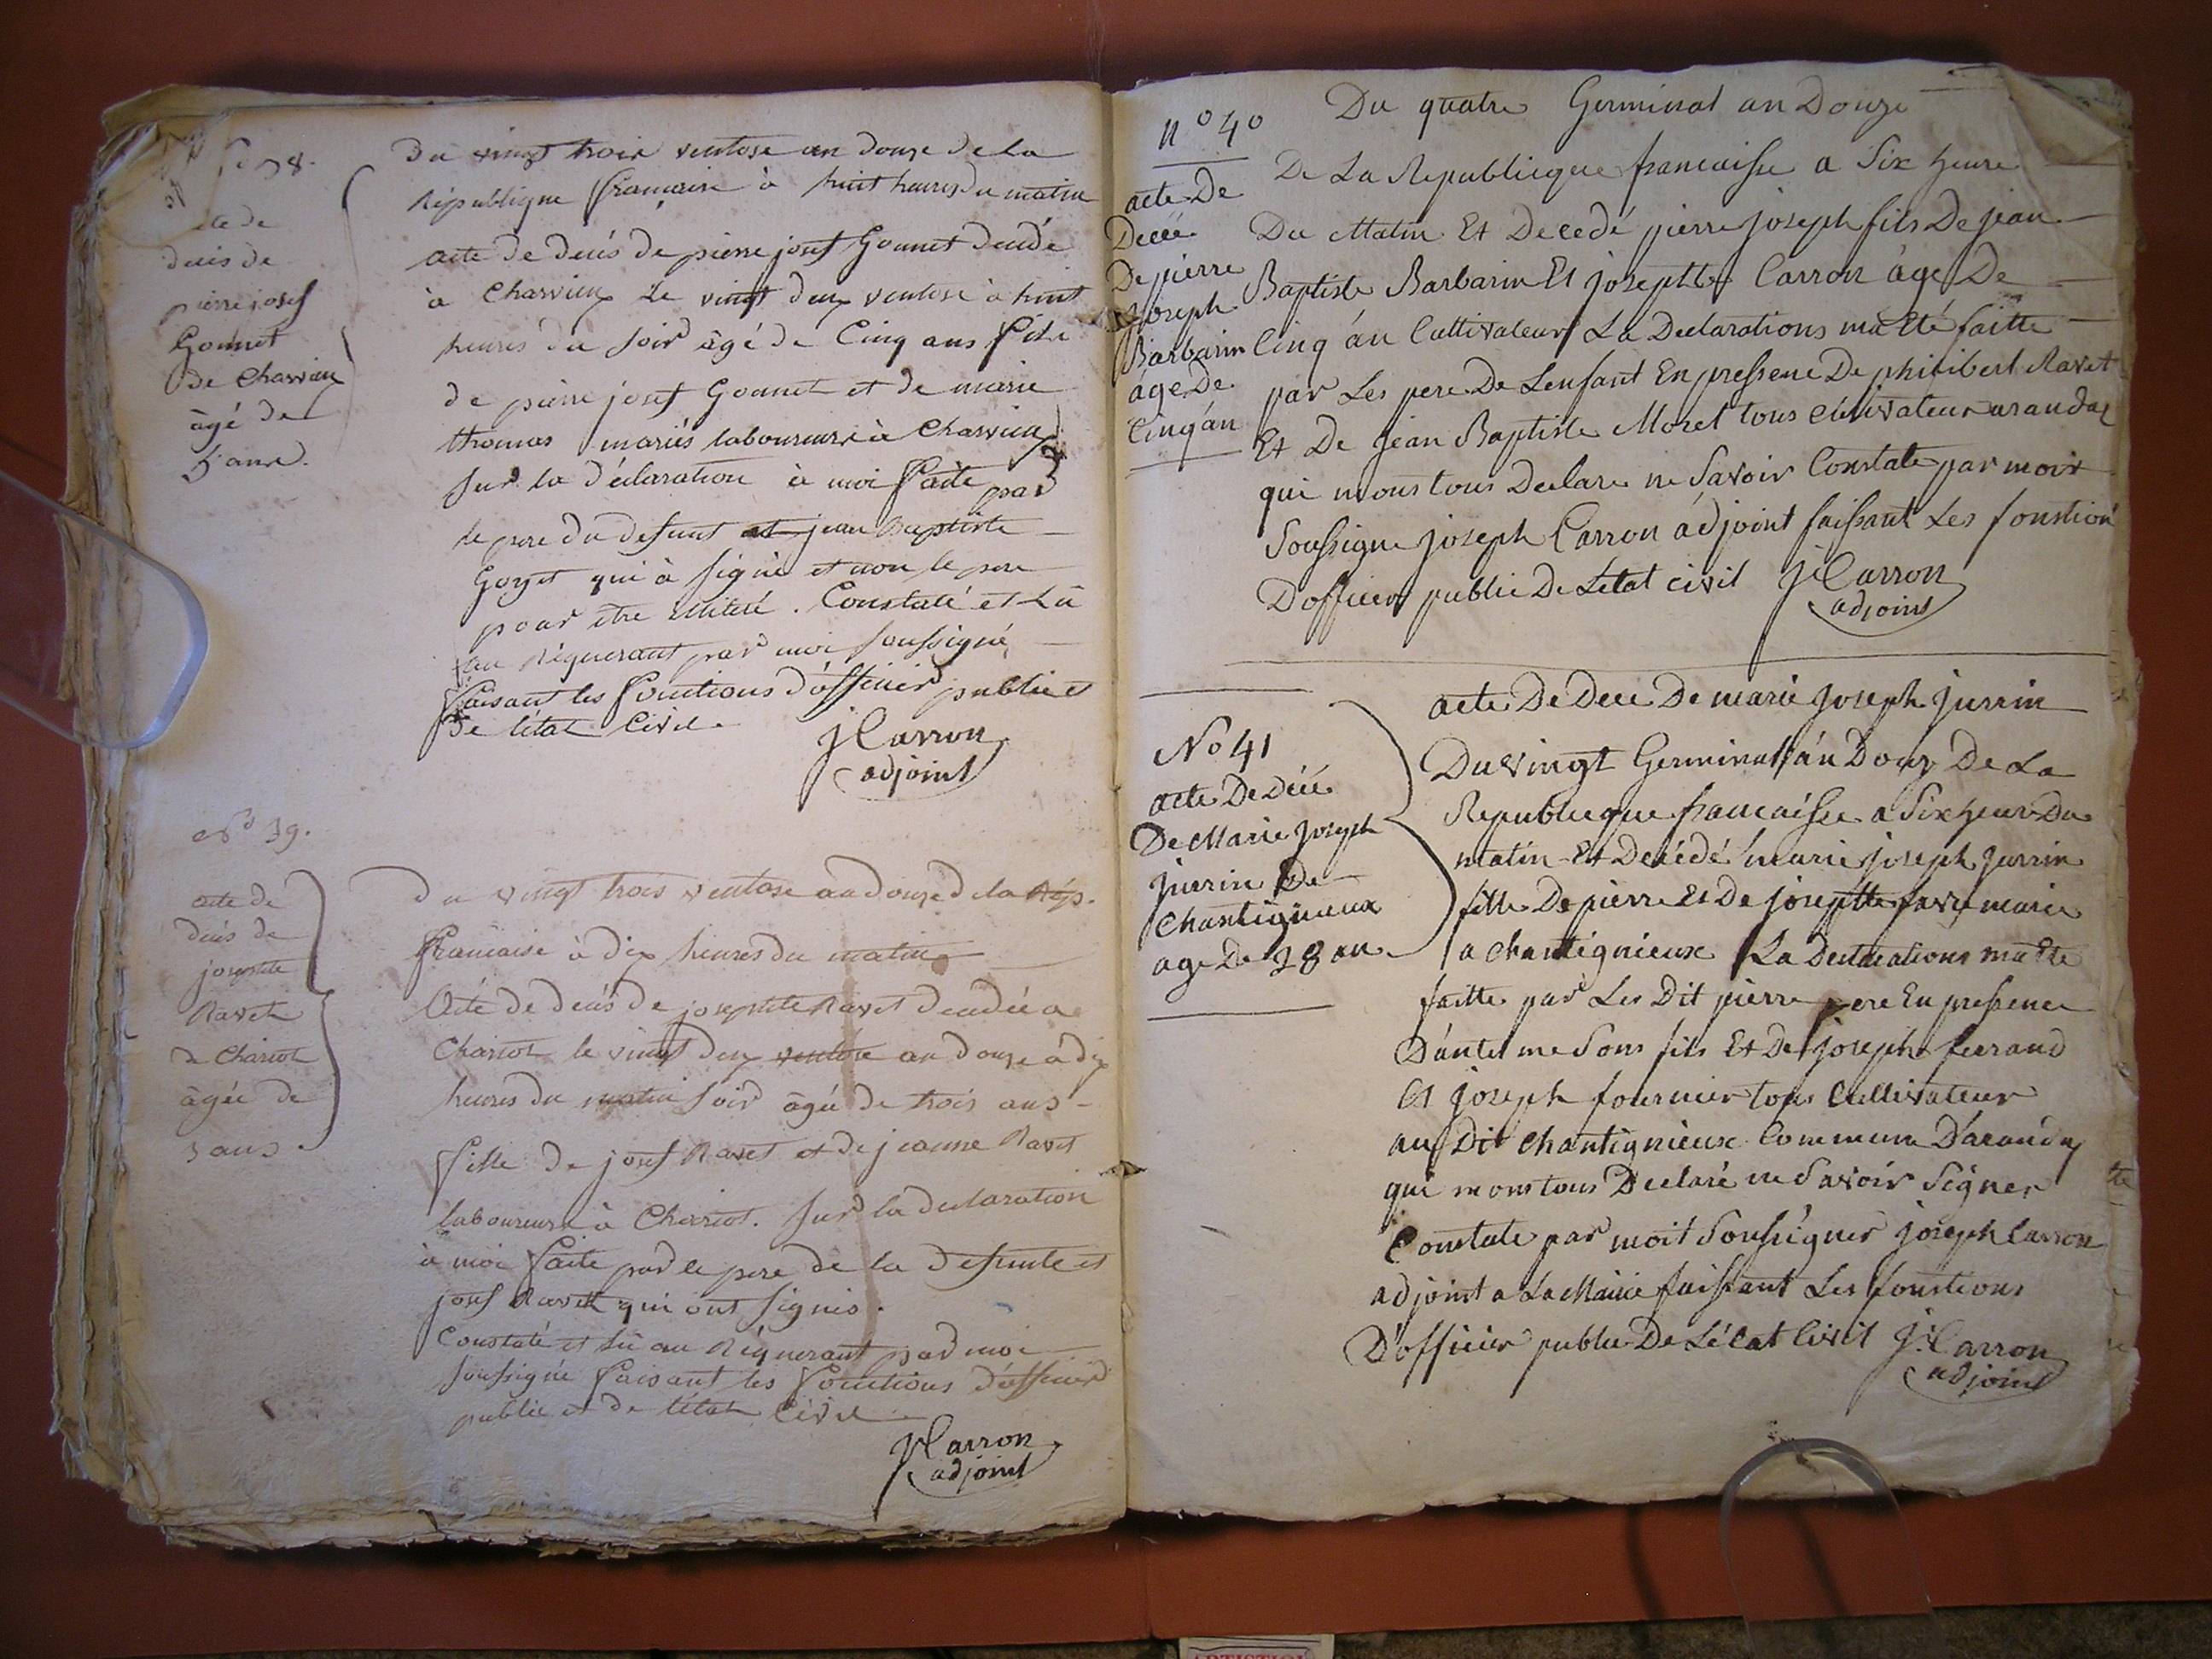 38.
acte de
décès de
pierre josef
Gonnet
de Charvieux
âgé de
5 ans.
Du vingt trois ventose an douze de la
République française à huit heures du matin
acte de décès de pierre josef Gonnet décédé
à Charvieux Le vingt deux ventose à huit
heures du soir âgé de Cinq ans fils
de pierre josef Gonnet et de marie
thomas mariés laboureurs à Charvieux
sur la déclaration à moi faite par
le pere du defunt et jean Baptiste
Goyet qui à signé et non le pere
pour être illitéré. Constaté et Lû
au Réquerant par moi soussigné
faisant les fonctions d'officier public et
de l'état Civil.
J Carron
adjoint
No 39.
acte de
décès de
josephte
Ravet
de Chariot
âgée de
3 ans
Du vingt trois ventose an douze de la Rép.
française à dix heures du matin
Acte de décès de josephte Ravet décédée a
Chariot le vingt deux ventose an douze à dix
heures du matin soir âgée de trois ans
fille de josef Ravet et de jeanne Ravet
laboureurs à Chariot. sur la declaration
à moi faite par le pere de la defunte et
josef Ravet qui ont signés.
Constaté et lû au Réquerant par moi
soussigné faisant les fonctions d'officier
public et de l'état Civil
J Carron
adjoint
n° 40
acte De
Decée
De pierre
Joseph
Barbarin
age De
Cinq án
Du quatre Germinal an Douze
De La Republicque francaisse a Six heure
Du Matin Et Decedé pierre joseph fils De jean
Baptiste Barbarin Et josephte Carron àge De
Cinq án Cultivateur La Declarations ma Eté faitte
par Les pere De Lenfant En pressence De philibert Ravet
Et De jean Baptiste Moret tous cultivateur a randas
qui mons tous Declare ne Savoir Constate par moit
Soussigne joseph Carron ádjoint faissant Les fonstion
Dofficier public De Létat civil J Carron
adjoint
No 41
acte De Décé
De Marie Joseph
jurrin De
Chantignieux
age De 28 an
acte De Dece De marie Joseph jurrin
Du vingt Germinal án Douz De La
Republicque francaísse a Six heur Du
matin Et Decédé marie joseph jurrin
fille De pierre Et De josephte favre marie
a chantignieux La Declarations ma Ete
faitte par Les Dit pierre pere En pressence
Dántelme Sons fils Et De joseph ferrand
Et joseph fournier tous Cultivateur
au Dit Chantignieux Commune D'arandas
qui mons tous Declaré ne Savoir Signer
Constate par moit Soussigner joseph Carron
adjoint a La Mairie faissant Les fonstions
D'officier public De Létat Civil J. Carron
adjoint